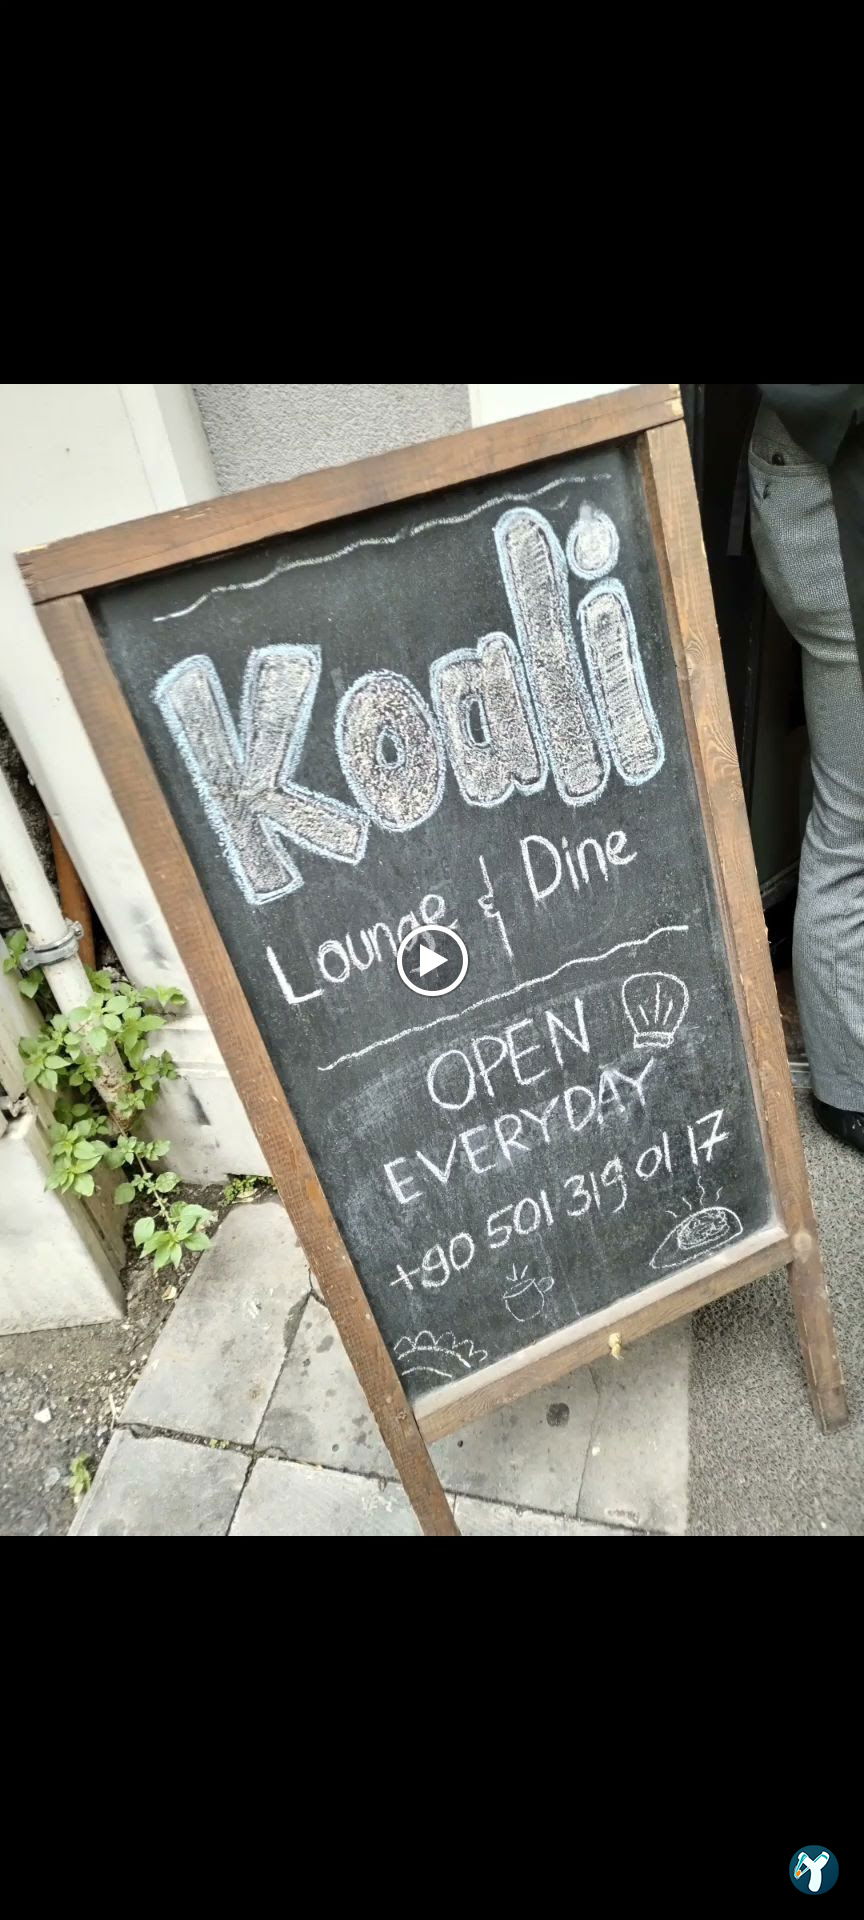 Koali
Lounge & Dine
OPEN
EVERYDAY
+90 501 319 01 17